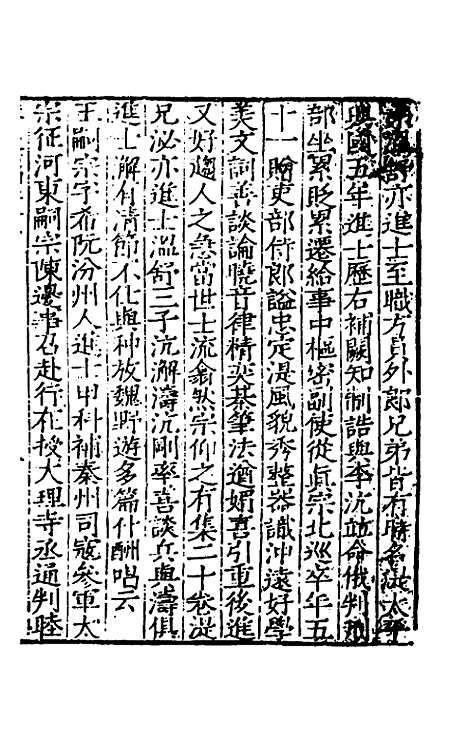 亦進士至職方員外郎兄弟皆有時名湜太平
興國五年進士歷右補闕知制誥與李沆竝命俄判吏
部坐累貶累遷給事中樞密副使從眞宗北巡卒年五
十一贈吏部侍郎謚忠定湜風貌秀整器識沖遠好學
美文詞善談論曉音律精奕棊筆法遒媚喜引重後進
又好趨人之急當世士流翕然宗仰之有集二十卷湜
兄泌亦進士溫舒三子沆解濤沆剛率喜談兵與濤俱
進士解有清節不仕與种放魏野遊多篇什酬唱云
王嗣宗字希阮汾州人進士甲科補秦州司寇參軍太
宗征河東嗣宗陳邊事召赴行在授大理寺丞通判睦